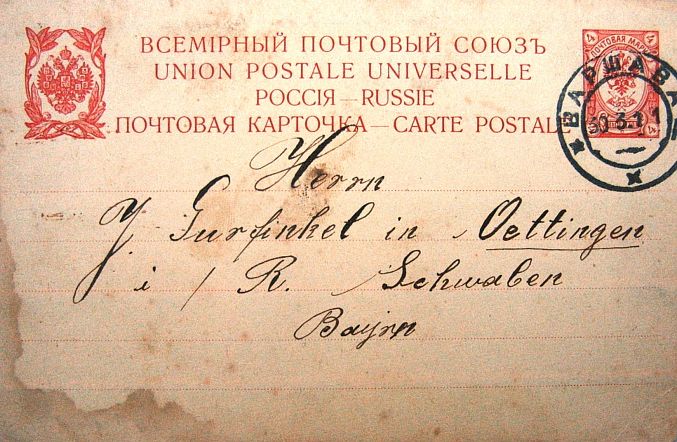 ВСЕМІРНЫЙ ПОЧТОВЫЙ СОЮЗЪ
UNION POSTALE UNIVERSELLE
РОССІЯ — RUSSIE
ПОЧТОВАЯ КАРТОЧКА — CARTE POSTALE
4 ПОЧТОВАЯ МАРКА 4
ВАРШАВА
30 3 11
4
Herrn
J. Gurfinkel in Oettingen
i / R. Schwaben
Bayrn